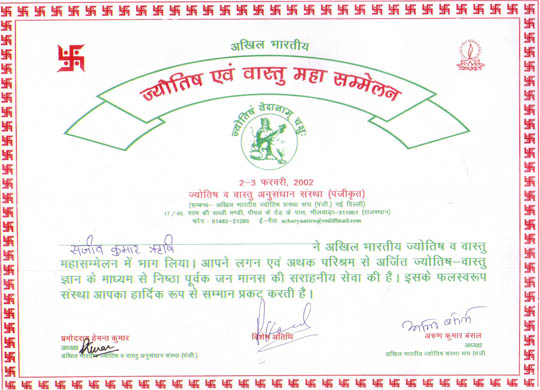 अखिल भारतीय
ज्योतिष एवं वास्तु महा सम्मेलन
ज्योतिषं वेदानाम् चक्षुः
2–3 फरवरी, 2002
ज्योतिष व वास्तु अनुसंधान संस्था (पंजीकृत)
(सम्बन्ध– अखिल भारतीय ज्योतिष संस्था संघ (पंजी.) नई दिल्ली)
17/46, शाम की सब्जी मण्डी, पीपल के पेड़ के पास, भीलवाड़ा–311001 (राजस्थान)
फोन : 01482–21290 ई–मेल: acharyaastro@rediffmail.com
संजीव कुमार ऋषि ने अखिल भारतीय ज्योतिष व वास्तु
महासम्मेलन में भाग लिया। आपने लगन एवं अथक परिश्रम से अर्जित ज्योतिष–वास्तु
ज्ञान के माध्यम से निष्ठा पूर्वक जन मानस की सराहनीय सेवा की है। इसके फलस्वरूप
संस्था आपका हार्दिक रूप से सम्मान प्रकट करती है।
हेमन्त कुमार
अध्यक्ष
अखिल भारतीय ज्योतिष व वास्तु अनुसंधान संस्था (पंजी.)
विशेष अतिथि
अरुण कुमार बंसल
अध्यक्ष
अखिल भारतीय ज्योतिष संस्था संघ (पंजी